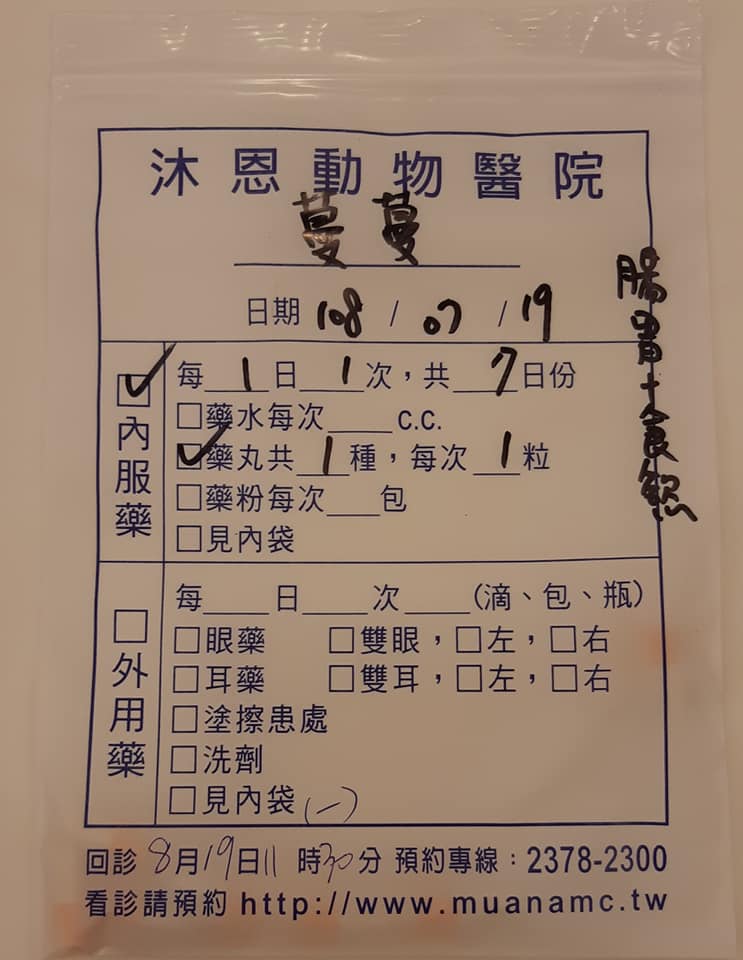 沐恩動物醫院
蔓蔓
日期 108 / 07 / 19
腸胃+食慾
☑內服藥
每 1 日 1 次，共 7 日份
□藥水每次____c.c.
☑藥丸共 1 種，每次 1 粒
□藥粉每次___包
□見內袋
□外用藥
每____日____次____(滴、包、瓶)
□眼藥 □雙眼，□左，□右
□耳藥 □雙耳，□左，□右
□塗擦患處
□洗劑
□見內袋(一)
回診 8月19日11時30分 預約專線：2378-2300
看診請預約 http://www.muanamc.tw